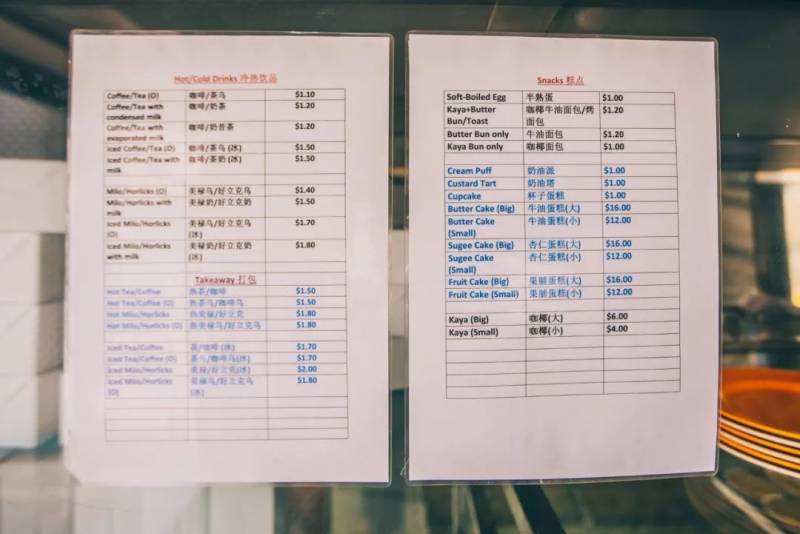 Hot/Cold Drinks 冷热饮品
Coffee/Tea (O) 咖啡/茶乌 $1.10
Coffee/Tea with 咖啡/奶茶 $1.20
condensed milk
Coffee/Tea with 咖啡/奶昔茶 $1.20
evaporated milk
Iced Coffee/Tea (O) 咖啡/茶乌 (冰) $1.50
Iced Coffee/Tea with 咖啡/茶奶 (冰) $1.50
milk
Milo/Horlicks (O) 美禄乌/好立克乌 $1.40
Milo/Horlicks with 美禄奶/好立克奶 $1.50
milk
Iced Milo/Horlicks 美禄乌/好立克乌 $1.70
(O) (冰)
Iced Milo/Horlicks 美禄奶/好立克奶 $1.80
with milk (冰)
Takeaway 打包
Hot Tea/Coffee 热茶/咖啡 $1.50
Hot Tea/Coffee (O) 热茶/咖啡乌 $1.50
Hot Milo/Horlicks 热美禄/好立克 $1.80
Hot Milo/Horlicks (O) 热美禄乌/好立克乌 $1.80
Iced Tea/Coffee 茶/咖啡 (冰) $1.70
Iced Tea/Coffee (O) 茶乌/咖啡乌(冰) $1.70
Iced Milo/Horlicks 美禄/好立克(冰) $2.00
Iced Milo/Horlicks 美禄乌/好立克乌 $1.80
(O) (冰)
Snacks 糕点
Soft-Boiled Egg 半熟蛋 $1.00
Kaya+Butter 咖椰牛油面包/烤 $1.20
Bun/Toast 面包
Butter Bun only 牛油面包 $1.20
Kaya Bun only 咖椰面包 $1.00
Cream Puff 奶油派 $1.00
Custard Tart 奶油塔 $1.00
Cupcake 杯子蛋糕 $1.00
Butter Cake (Big) 牛油蛋糕(大) $16.00
Butter Cake 牛油蛋糕(小) $12.00
(Small)
Sugee Cake (Big) 杏仁蛋糕(大) $16.00
Sugee Cake 杏仁蛋糕(小) $12.00
(Small)
Fruit Cake (Big) 果丽蛋糕(大) $16.00
Fruit Cake (Small) 果丽蛋糕(小) $12.00
Kaya (Big) 咖椰(大) $6.00
Kaya (Small) 咖椰(小) $4.00